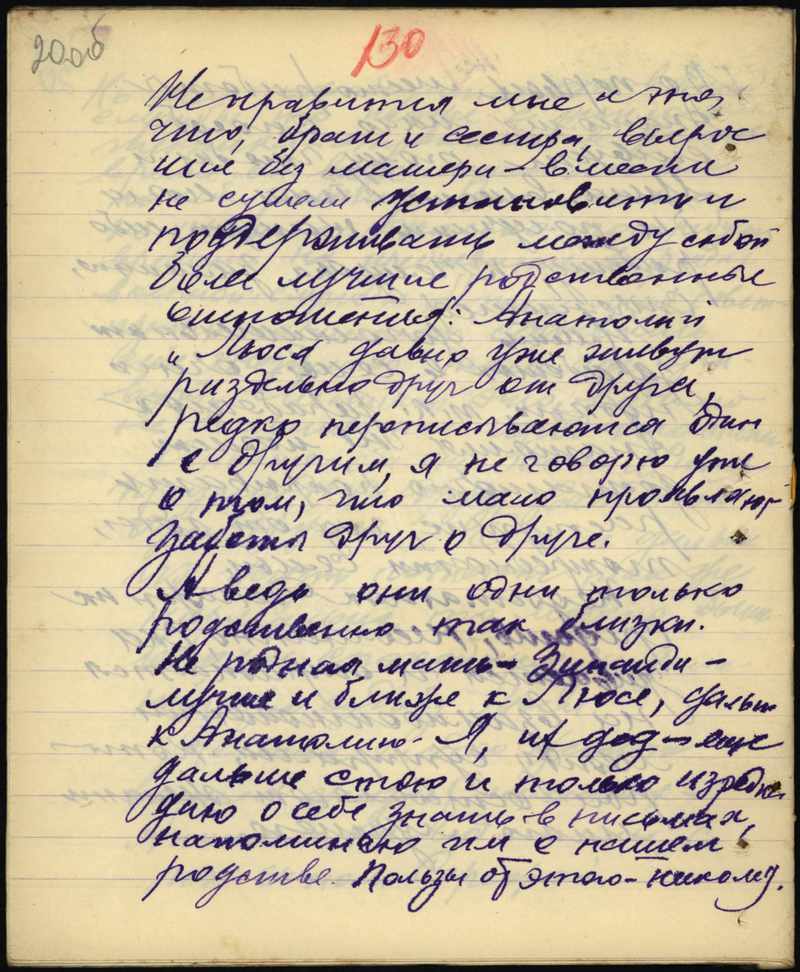 200б
130
Не нравится мне и то,
что, брат и сестра, вырос
шие без матери – вместе
не сумели установить и
поддерживать между собой
более лучшие родственные
отношения: Анатолий
и Люся давно уже живут
раздельно друг от друга,
редко переписываются один
с другим, я не говорю уже
о том, что мало проявляют
заботы друг о друге.
А ведь они одни только
родственно так близки.
Не родная мать – Зинаиди –
лучше и ближе к Люсе, дальше
к Анатолию. Я, их дед – еще
дальше стою и только изредка
даю о себе знать – в письмах,
напоминаю им о нашем
родстве. Пользы от этого – никому.